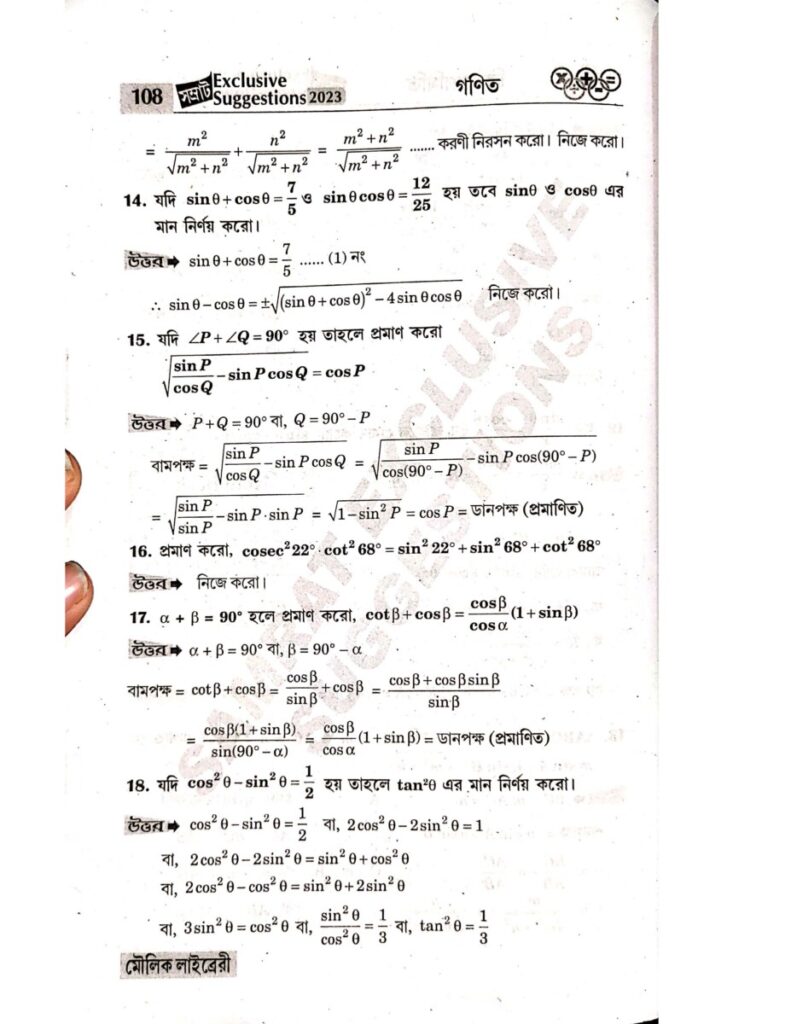 108 সম্রাট Exclusive Suggestions 2023 গণিত
= m²/√(m² + n²) + n²/√(m² + n²) = (m² + n²)/√(m² + n²) ....... করণী নিরসন করো। নিজে করো।
14. যদি sin θ + cos θ = 7/5 ও sin θ cos θ = 12/25 হয় তবে sinθ ও cosθ এর
মান নির্ণয় করো।
উত্তর ➡ sin θ + cos θ = 7/5 ...... (1) নং
∴ sin θ – cos θ = ±√((sin θ + cos θ)² – 4 sin θ cos θ) নিজে করো।
15. যদি ∠P + ∠Q = 90° হয় তাহলে প্রমাণ করো
√(sin P/cos Q – sin P cos Q) = cos P
উত্তর ➡ P + Q = 90° বা, Q = 90° – P
বামপক্ষ = √(sin P/cos Q – sin P cos Q) = √(sin P/cos(90° – P) – sin P cos(90° – P))
= √(sin P/sin P – sin P · sin P) = √(1 – sin² P) = cos P = ডানপক্ষ (প্রমাণিত)
16. প্রমাণ করো, cosec² 22° · cot² 68° = sin² 22° + sin² 68° + cot² 68°
উত্তর ➡ নিজে করো।
17. α + β = 90° হলে প্রমাণ করো, cot β + cos β = cos β/cos α (1 + sin β)
উত্তর ➡ α + β = 90° বা, β = 90° – α
বামপক্ষ = cot β + cos β = cos β/sin β + cos β = (cos β + cos β sin β)/sin β
= cos β(1 + sin β)/sin(90° – α) = cos β/cos α (1 + sin β) = ডানপক্ষ (প্রমাণিত)
18. যদি cos² θ – sin² θ = 1/2 হয় তাহলে tan²θ এর মান নির্ণয় করো।
উত্তর ➡ cos² θ – sin² θ = 1/2 বা, 2cos² θ – 2sin² θ = 1
বা, 2cos² θ – 2sin² θ = sin² θ + cos² θ
বা, 2cos² θ – cos² θ = sin² θ + 2sin² θ
বা, 3sin² θ = cos² θ বা, sin² θ/cos² θ = 1/3 বা, tan² θ = 1/3
মৌলিক লাইব্রেরী
SAMRAT EXCLUSIVE
SUGGESTIONS